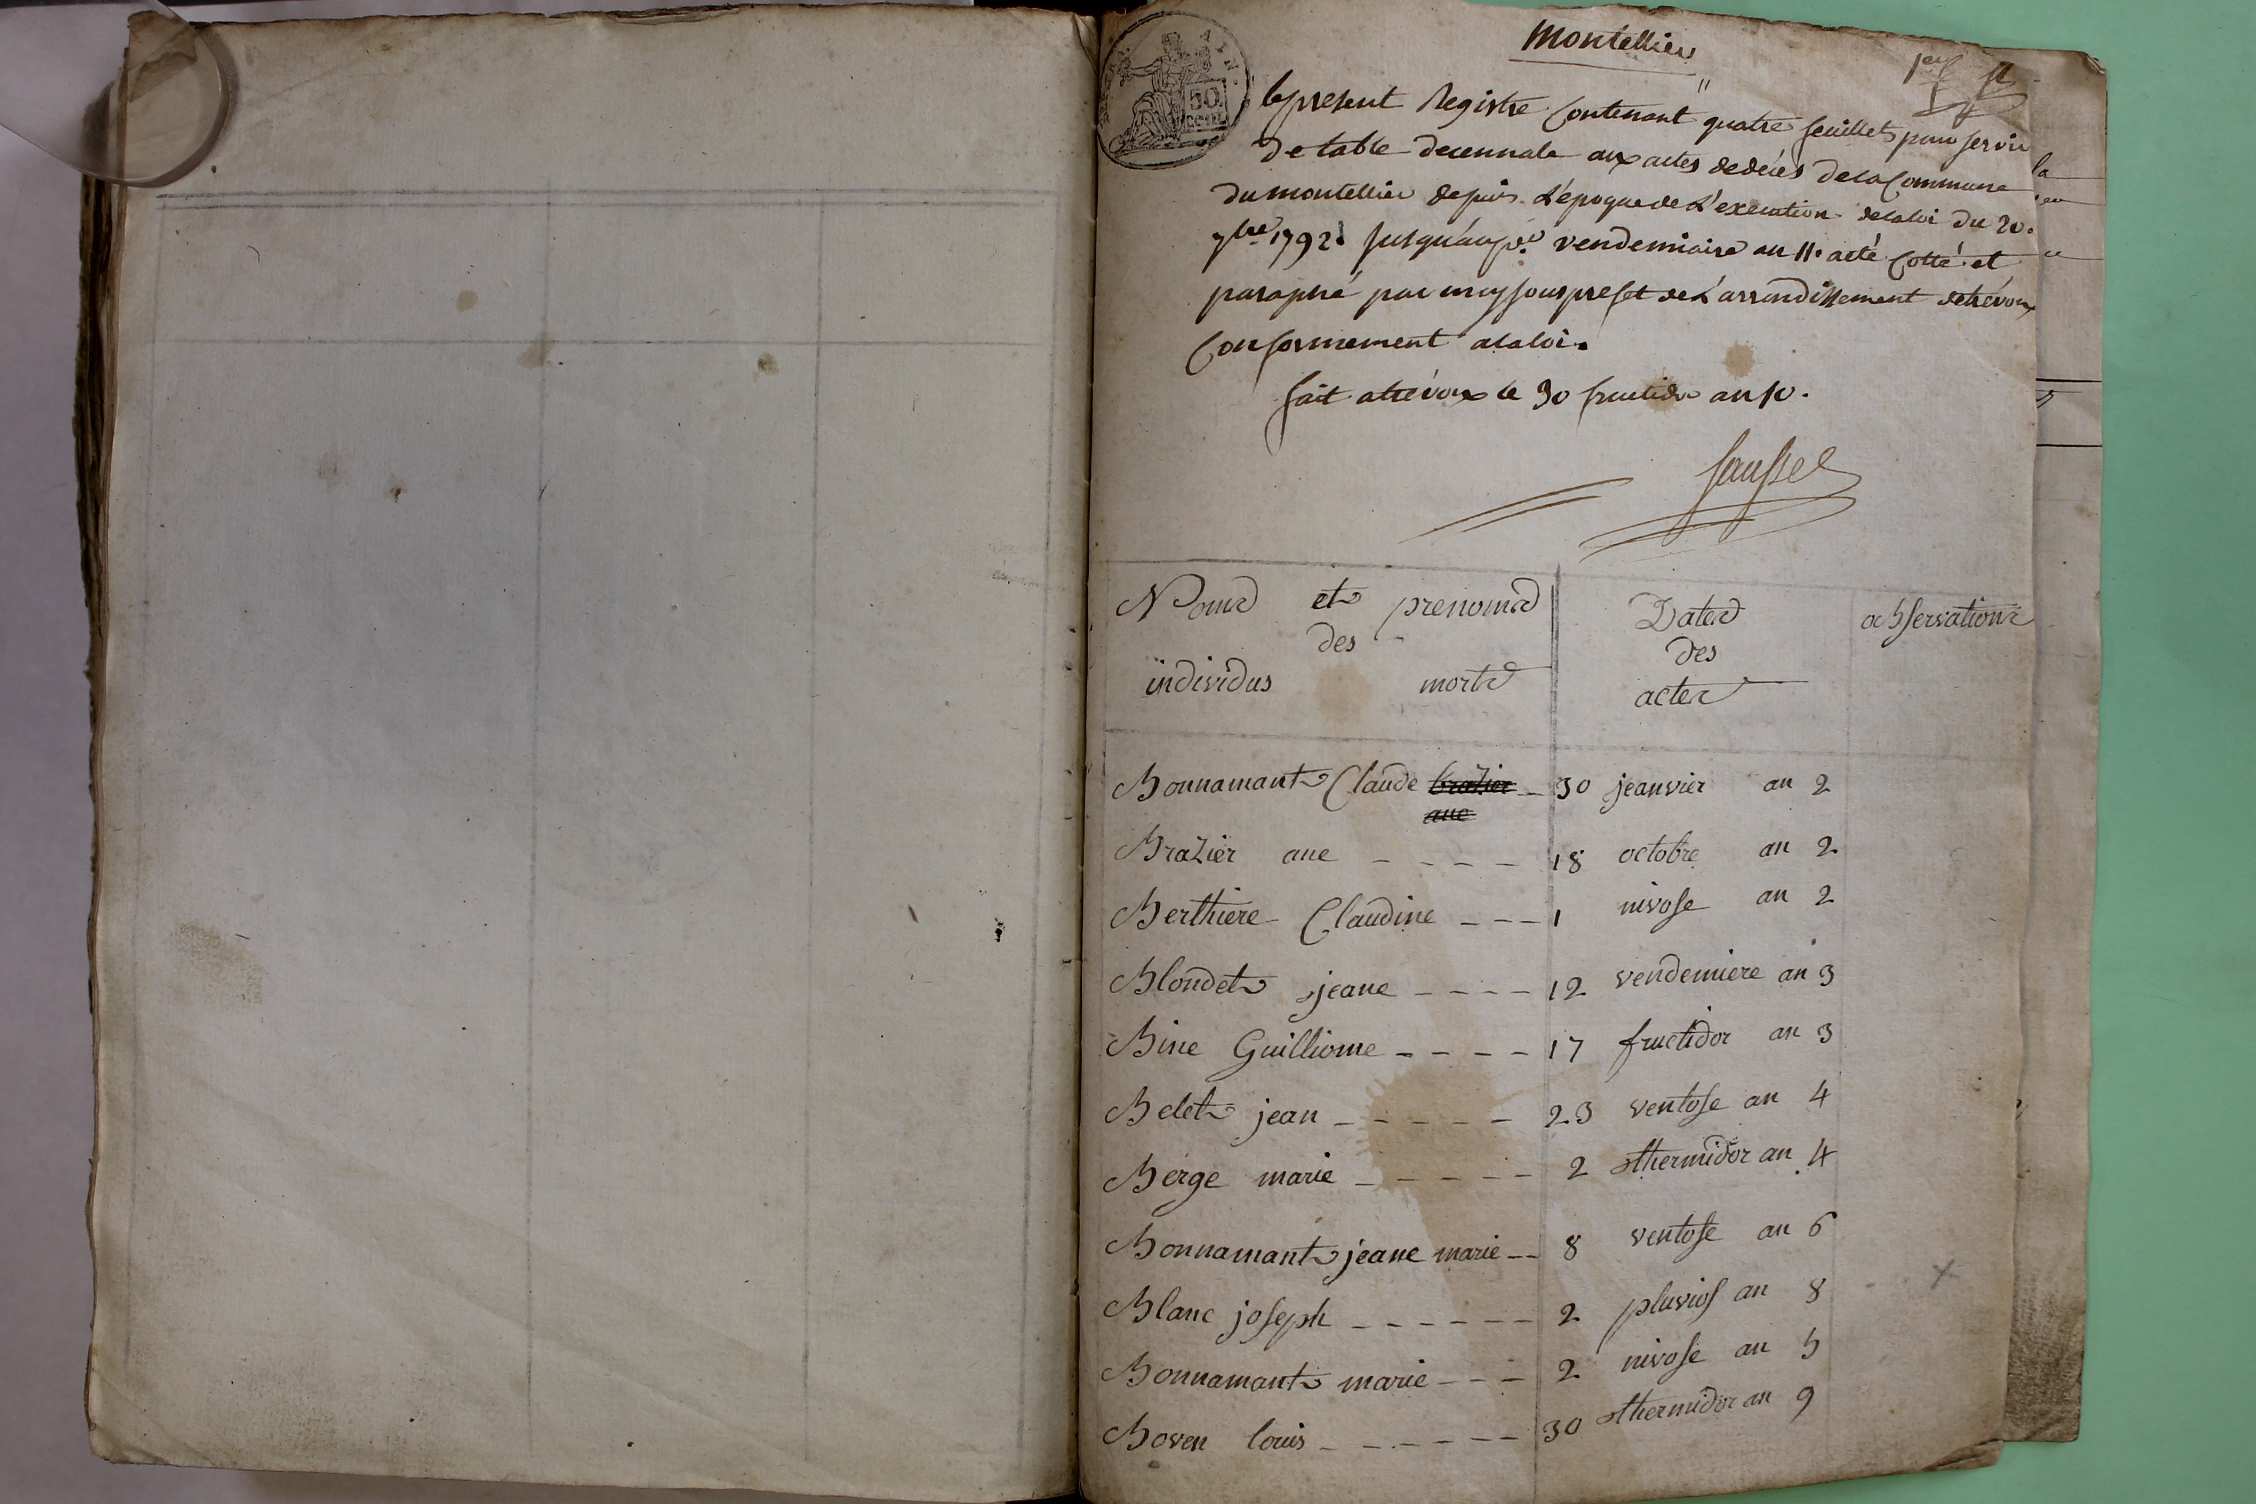 Montellier
1er
50
CENT.
le present Registre Contenant quatre feuillets pour servir
de table decennale aux actes de décès de la Commune
du montellier depuis L'époque de L'execution de la loi du 20.
7bre 1792. jusqu'au per vendemiaire an 11. a eté Cotté et
paraphé par moy sous prefet de L'arrondissement de trévoux
Conformement a la loi.
fait a trévoux le 30 fructidor an 10.
Noms et prenoms
des
individus morts
Dates
des
actes
observations
Bonnamant Claude brazier 30 jeanvier an 2
ane
Brazier ane 18 octobre an 2
Berthiere Claudine 1 nivose an 2
Blondet jeane 12 vendemiere an 3
Bine Guilliome 17 fructidor an 3
Belet jean 23 ventose an 4
Berge marie 2 thermidor an 4
Bonnamant jeane marie 8 ventose an 6
Blanc joseph 2 pluvios an 8
Bonnamant marie 2 nivose an 5
Boven louis 30 thermidor an 9